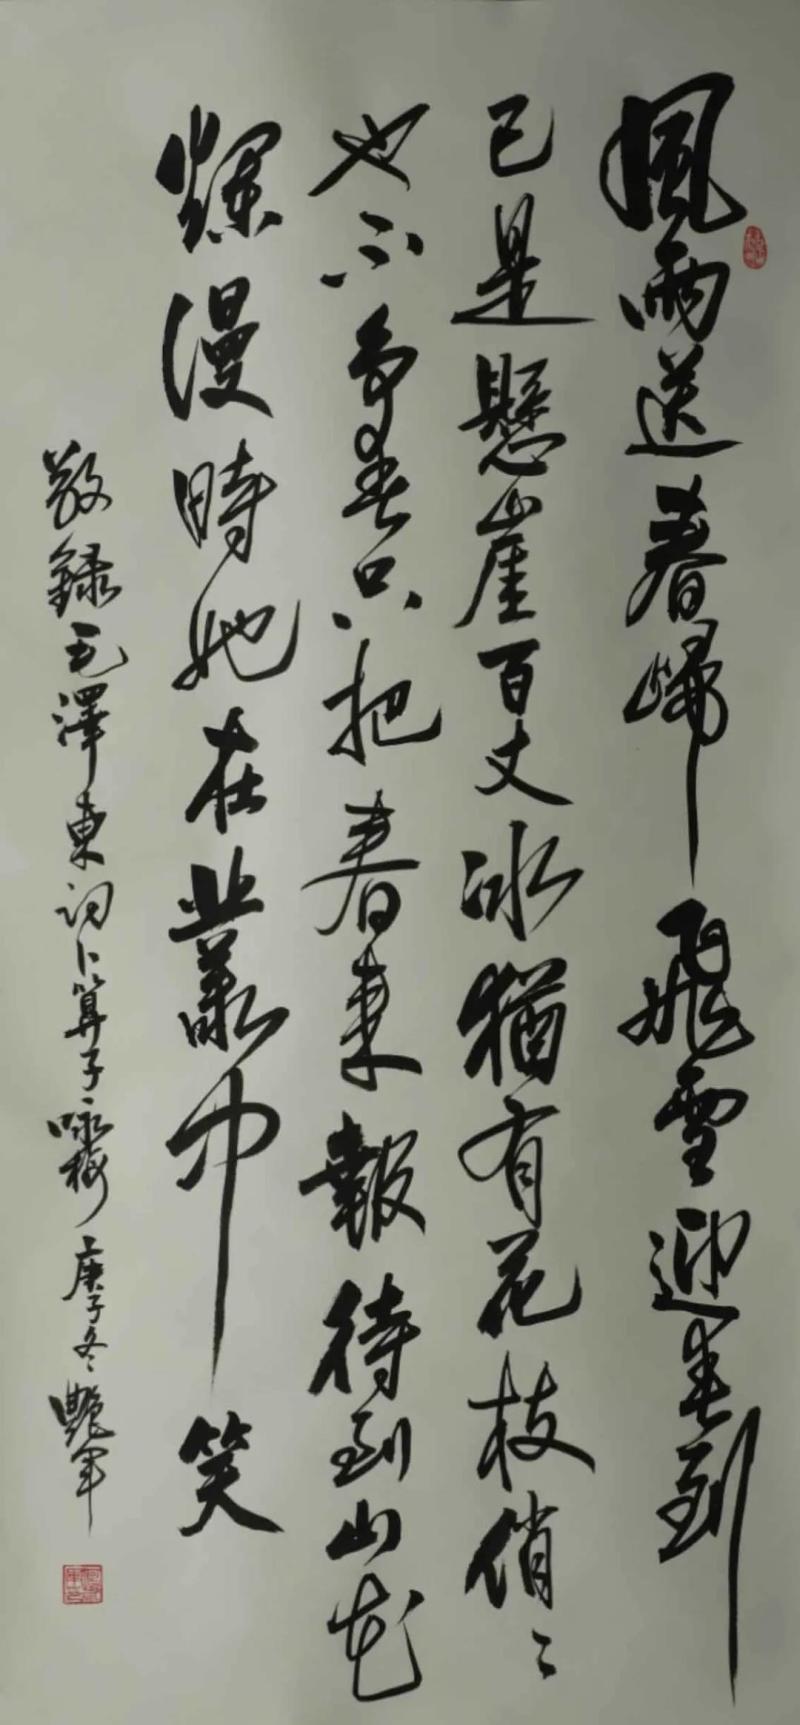 風雨送春歸飛雪迎春到
已是懸崖百丈冰猶有花枝俏〻
也不爭春只把春來報待到山花
爛漫時她在叢中笑
敬録毛澤東詞卜算子咏梅庚子冬艷軍